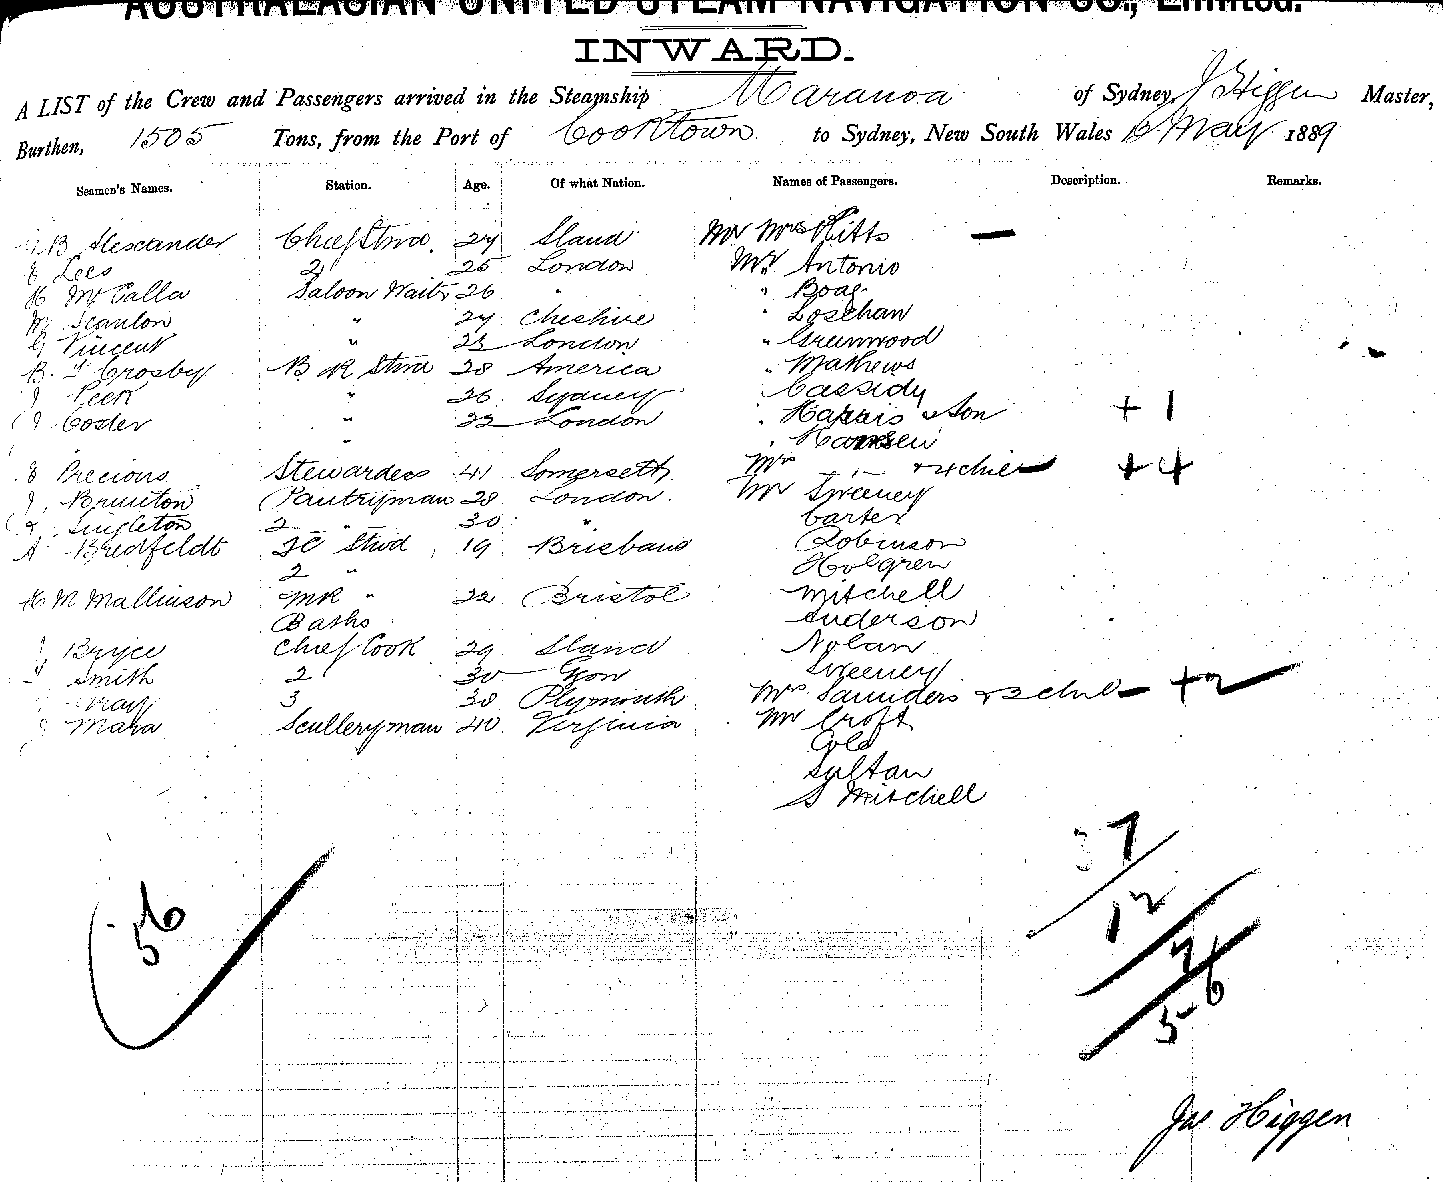 AUSTRALASIAN UNITED STEAM NAVIGATION CO., Limited.
INWARD.
A LIST of the Crew and Passengers arrived in the Steamship Maranoa of Sydney, J Higgen Master,
Burthen, 1505 Tons, from the Port of Cooktown to Sydney, New South Wales May 1889
Seamen's Names. Station. Age. Of what Nation. Names of Passengers. Description. Remarks.
B Alexander Chief Stwd. 27 Sland Mr Mrs Pitts —
E Lees 2 25 London Mr Antonio
H McCalla Saloon Waitr 26 " " Boag
W Scanlon " 27 Cheshire " Loschan
G Vincent " 23 London " Greenwood
B. T Crosby B R Stwd 28 America " Mathews
J Peek " 26 Sydney Cassidy
J Coster " 22 London " Harris & Son + 1
" " Hansen
E Precious Stewardess 41 Somersett Mrs " & 4 chil + 4
J. Brunton Pantryman 28 London Mr Sweeney
Singleton 2 " 30 " Carter
A Bredfeldt Stwd 19 Brisbane Robinson
2 " Holgren
H M Mallinson MR " 22 Bristol Mitchell
Baths Anderson
J Bryce Chief Cook 29 Sland Nolan
Smith 2 30 Sweeney
3 38 Plymouth Mrs Saunders & 2 chil + 2
J Mara Sculleryman 40 Virginia Mr Croft
Cole
Sultan
S Mitchell
37
12
56
7
56
Jas Higgen